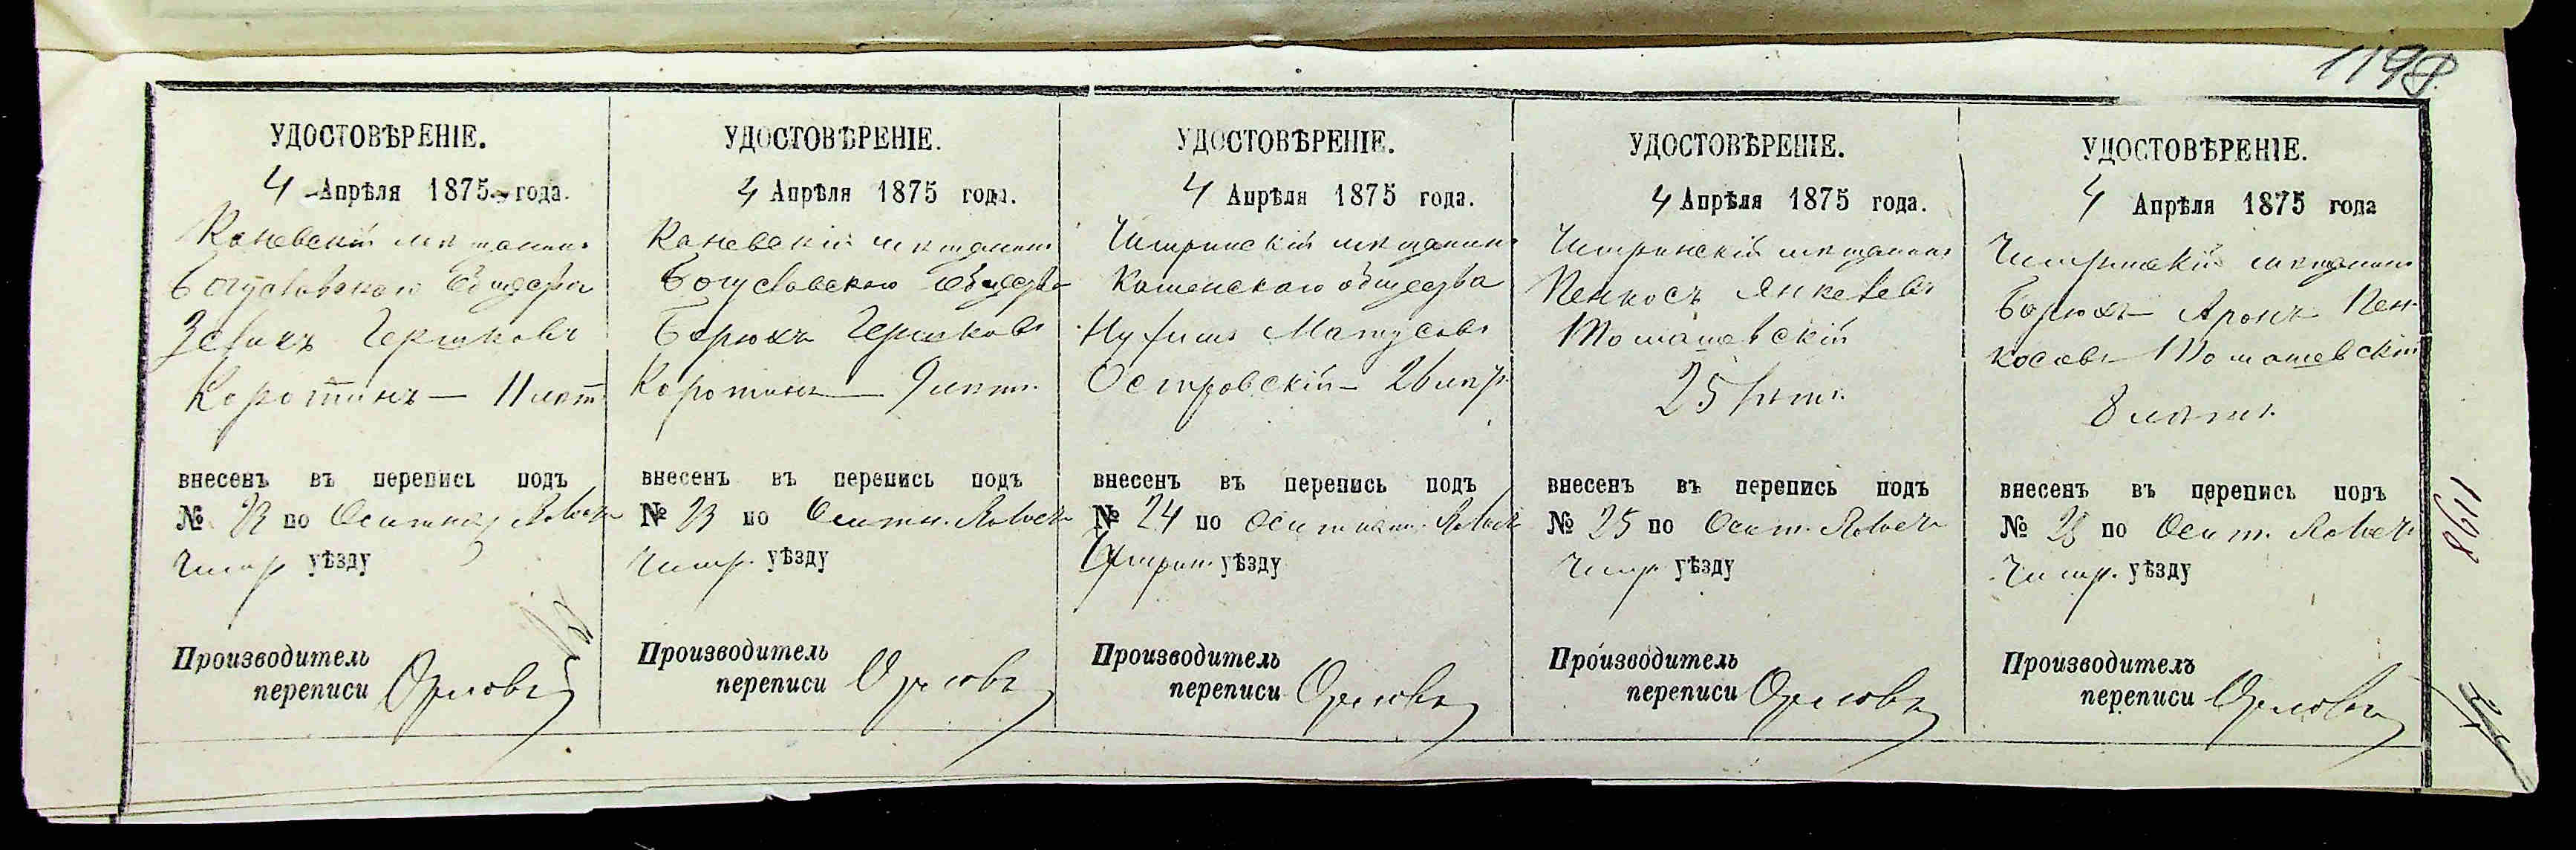 1198.
УДОСТОВѢРЕНІЕ.
4 Апрѣля 1875 года.
Каневскій мѣщанинъ
Богуславскаго общества
Гершковъ
Коротинъ — 11 лѣтъ
внесенъ въ перепись подъ
№ 23 по
Чигир уѣзду
Производитель
переписи Орловъ
УДОСТОВѢРЕНІЕ.
4 Апрѣля 1875 года.
Каневскій мѣщанинъ
Богуславскаго общества
Борюхъ Гершковъ
Коротинъ — 9 лѣтъ
внесенъ въ перепись подъ
№ 23 по
Чигир. уѣзду
Производитель
переписи Орловъ
УДОСТОВѢРЕНІЕ.
4 Апрѣля 1875 года.
Чигиринскій мѣщанинъ
Каменскаго общества
Нухимъ Матусовъ
Островскій — 26 лѣтъ
внесенъ въ перепись подъ
№ 24 по
Чигирин. уѣзду
Производитель
переписи Орловъ
УДОСТОВѢРЕНІЕ.
4 Апрѣля 1875 года.
Чигиринскій мѣщанинъ
Пенкосъ Янкелевъ
Томашевскій
25 лѣтъ
внесенъ въ перепись подъ
№ 25 по
Чигир уѣзду
Производитель
переписи Орловъ
УДОСТОВѢРЕНІЕ.
4 Апрѣля 1875 года
Чигиринскій мѣщанинъ
Борюхъ — Аронъ Пен-
косовъ Томашевскій
8 лѣтъ
внесенъ въ перепись подъ
№ по
Чигир. уѣзду
Производитель
переписи Орловъ
1198